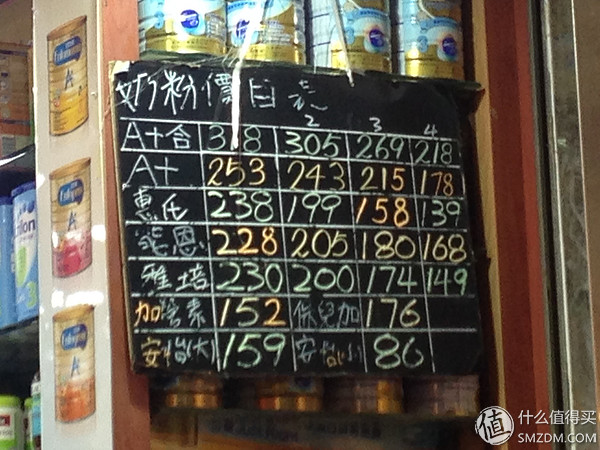 奶粉價目表
2 3 4
A+合 305 269 218
A+ 253 243 215 178
惠氏 238 199 158 139
能恩 228 205 180 168
雅培 230 200 174 149
加營素 152 保兒加 176
安怡(大) 159 安怡(小) 86
值 什么值得买
SMZDM.COM